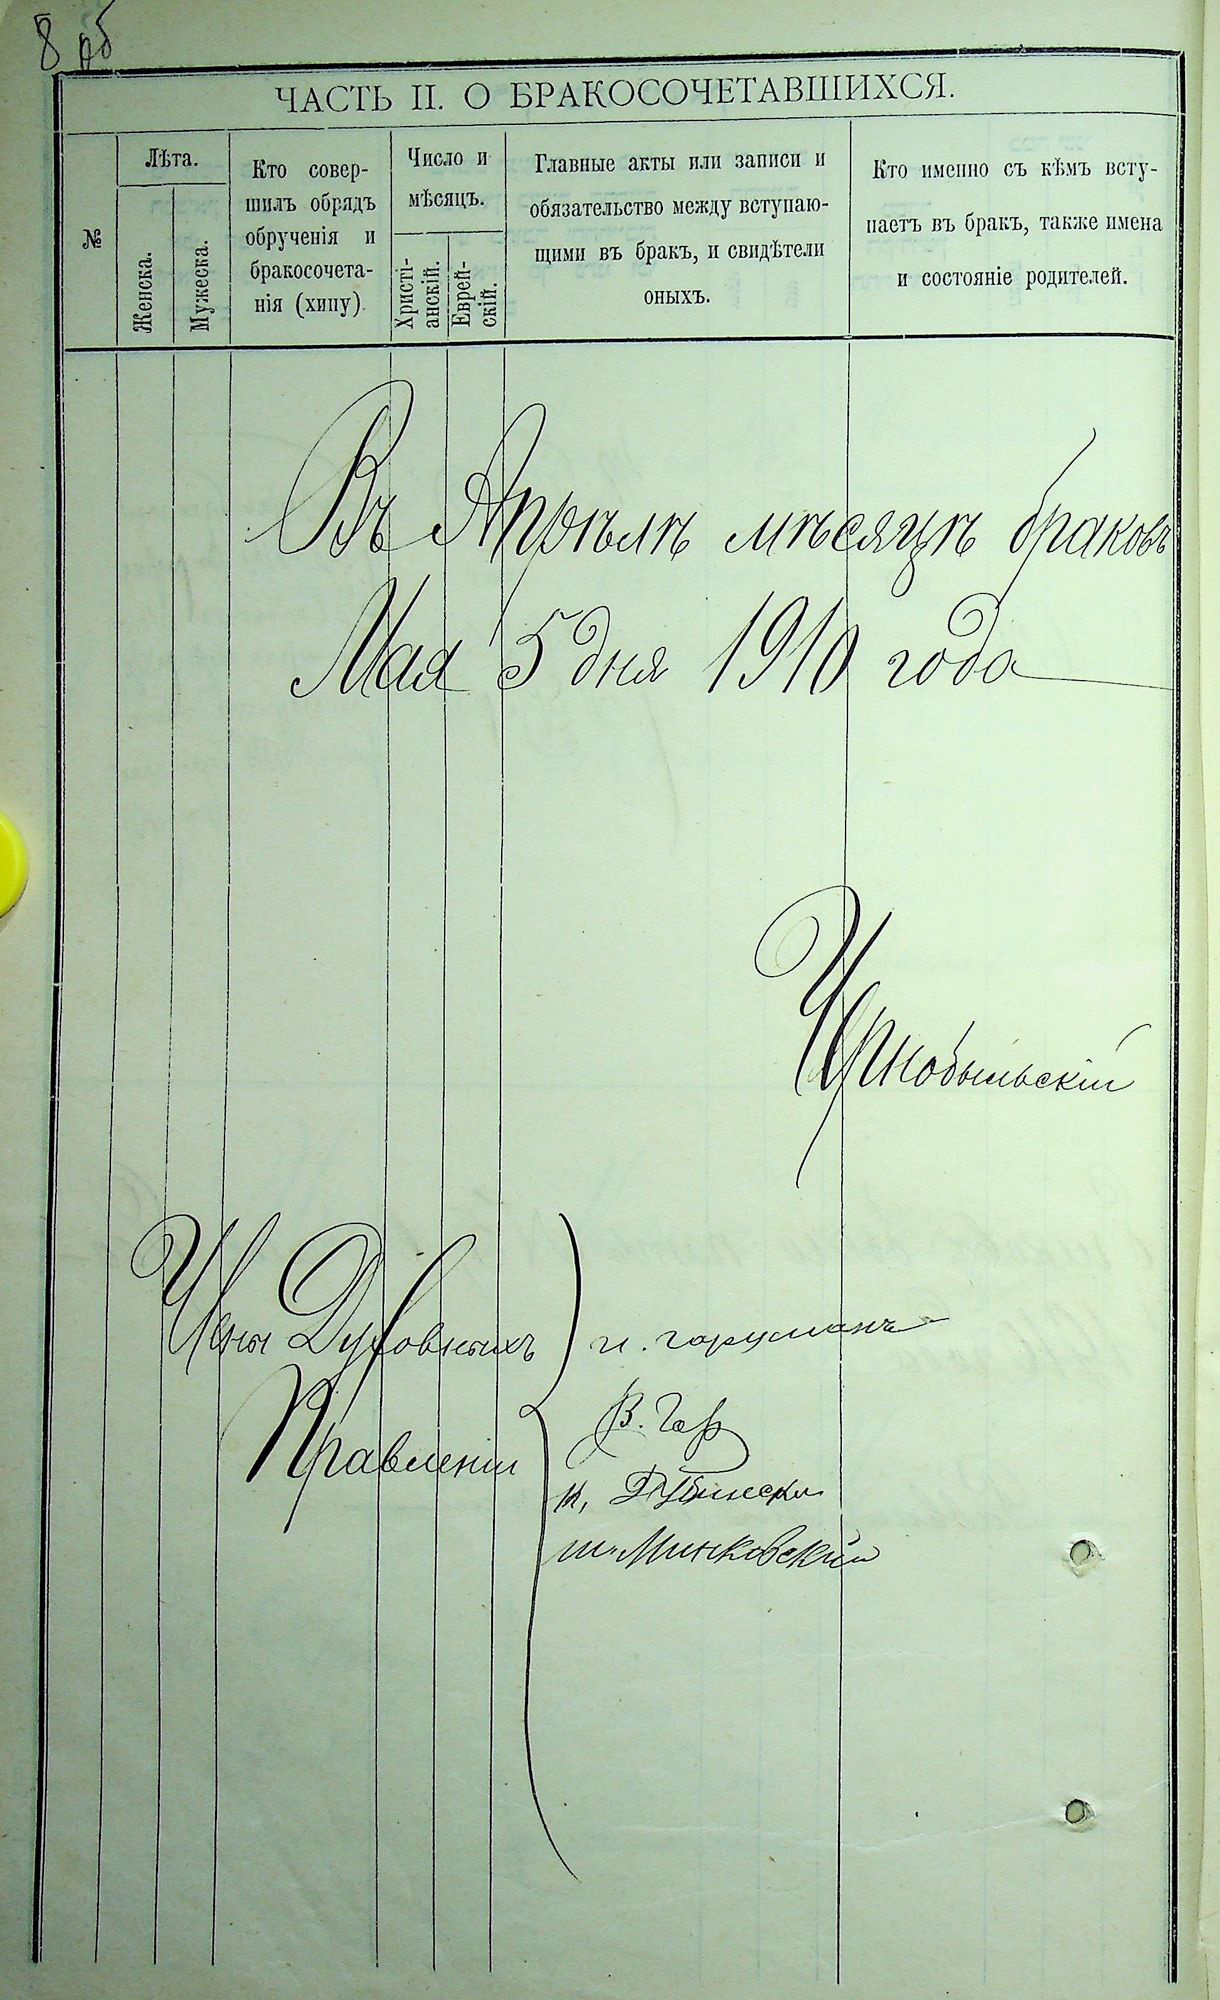 8 об
ЧАСТЬ II. О БРАКОСОЧЕТАВШИХСЯ.
№
Лѣта.
Женска.
Мужеска.
Кто совер-
шилъ обрядъ
обрученія и
бракосочета-
нія (хипу).
Число и
мѣсяцъ.
Христі-
анскій.
Еврей-
скій.
Главные акты или записи и
обязательство между вступаю-
щими въ бракъ, и свидѣтели
оныхъ.
Кто именно съ кѣмъ всту-
паетъ въ бракъ, также имена
и состояніе родителей.
Въ Апрѣлѣ мѣсяцѣ браковъ
Мая 5 дня 1910 года
Чернобыльскій
Члены Духовныхъ
Правленій
В. Гор
Минковский